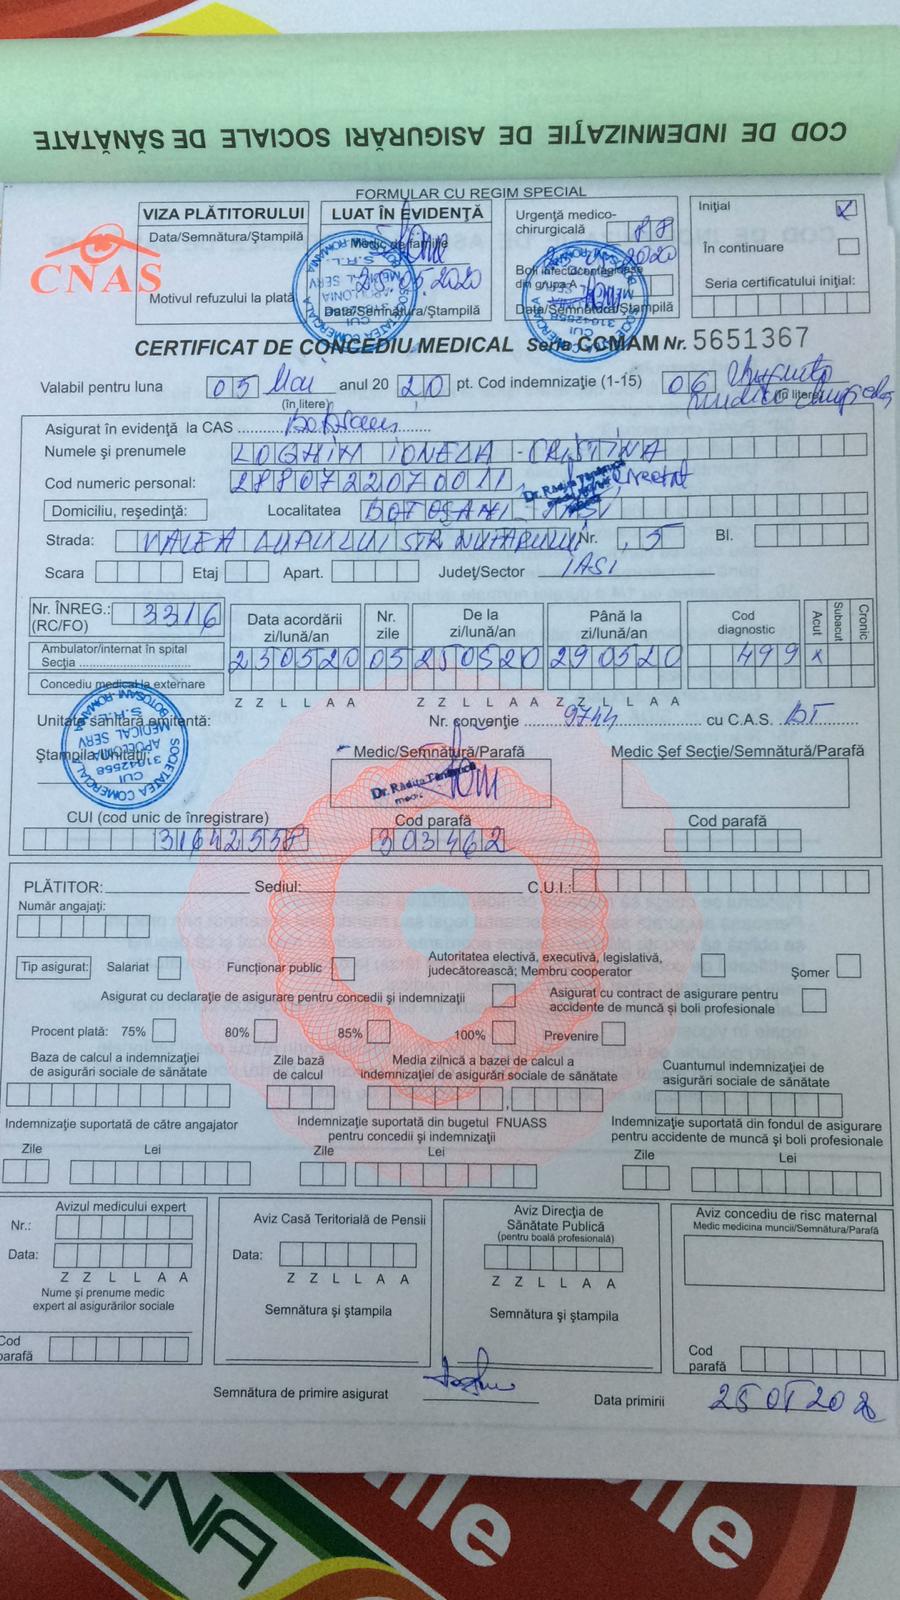 COD DE INDEMNIZAŢIE DE ASIGURĂRI SOCIALE DE SĂNĂTATE
FORMULAR CU REGIM SPECIAL
CNAS
VIZA PLĂTITORULUI
Data/Semnătura/Ştampilă
Motivul refuzului la plată
LUAT ÎN EVIDENŢĂ
Medic de familie
25.05.2020
Data/Semnătura/Ştampilă
Urgenţă medico-
chirurgicală 88
Boli infectocontagioase
din grupa A
Data/Semnătura/Ştampilă
Iniţial X
În continuare
Seria certificatului iniţial:
CERTIFICAT DE CONCEDIU MEDICAL Seria CCMAM Nr. 5651367
Valabil pentru luna 05 Mai anul 20 20 pt. Cod indemnizaţie (1-15) 06
(în litere) (în litere)
Asigurat în evidenţă la CAS
Numele şi prenumele LOGHIN IONELA - CRISTINA
Cod numeric personal: 2880722070011
Domiciliu, reşedinţă: Localitatea BOTOŞANI - IASI
Strada: VALEA LUPULUI STR Nr. 5 Bl.
Scara Etaj Apart. Judeţ/Sector IASI
Nr. ÎNREG.: 3316
(RC/FO)
Data acordării
zi/lună/an
Nr.
zile
De la
zi/lună/an
Până la
zi/lună/an
Cod
diagnostic
Acut
Subacut
Cronic
Ambulator/internat în spital
Secţia
250520 05 250520 290520 499 x
Concediu medical la externare
Z Z L L A A Z Z L L A A Z Z L L A A
Unitate sanitară emitentă: Nr. convenţie 9744 cu C.A.S. BT
Ştampila Unităţii:
SOCIETATEA COMERCIALĂ
APOLLONIA MEDICAL SERV S.R.L.
CUI 31642558
BOTOŞANI - ROMÂNIA
Medic/Semnătură/Parafă
Medic Şef Secţie/Semnătură/Parafă
CUI (cod unic de înregistrare)
31642558
Cod parafă
303462
Cod parafă
PLĂTITOR: Sediul: C.U.I.:
Număr angajaţi:
Tip asigurat: Salariat Funcţionar public Autoritatea electivă, executivă, legislativă,
judecătorească; Membru cooperator Şomer
Asigurat cu declaraţie de asigurare pentru concedii şi indemnizaţii
Asigurat cu contract de asigurare pentru
accidente de muncă şi boli profesionale
Procent plată: 75% 80% 85% 100% Prevenire
Baza de calcul a indemnizaţiei
de asigurări sociale de sănătate
Zile bază
de calcul
Media zilnică a bazei de calcul a
indemnizaţiei de asigurări sociale de sănătate
Cuantumul indemnizaţiei de
asigurări sociale de sănătate
Indemnizaţie suportată de către angajator
Zile Lei
Indemnizaţie suportată din bugetul FNUASS
pentru concedii şi indemnizaţii
Zile Lei
Indemnizaţie suportată din fondul de asigurare
pentru accidente de muncă şi boli profesionale
Zile Lei
Avizul medicului expert
Nr.:
Data:
Z Z L L A A
Nume şi prenume medic
expert al asigurărilor sociale
Cod
parafă
Aviz Casă Teritorială de Pensii
Data:
Z Z L L A A
Semnătura şi ştampila
Aviz Direcţia de
Sănătate Publică
(pentru boală profesională)
Z Z L L A A
Semnătura şi ştampila
Aviz concediu de risc maternal
Medic medicina muncii/Semnătura/Parafă
Cod
parafă
Semnătura de primire asigurat
Data primirii